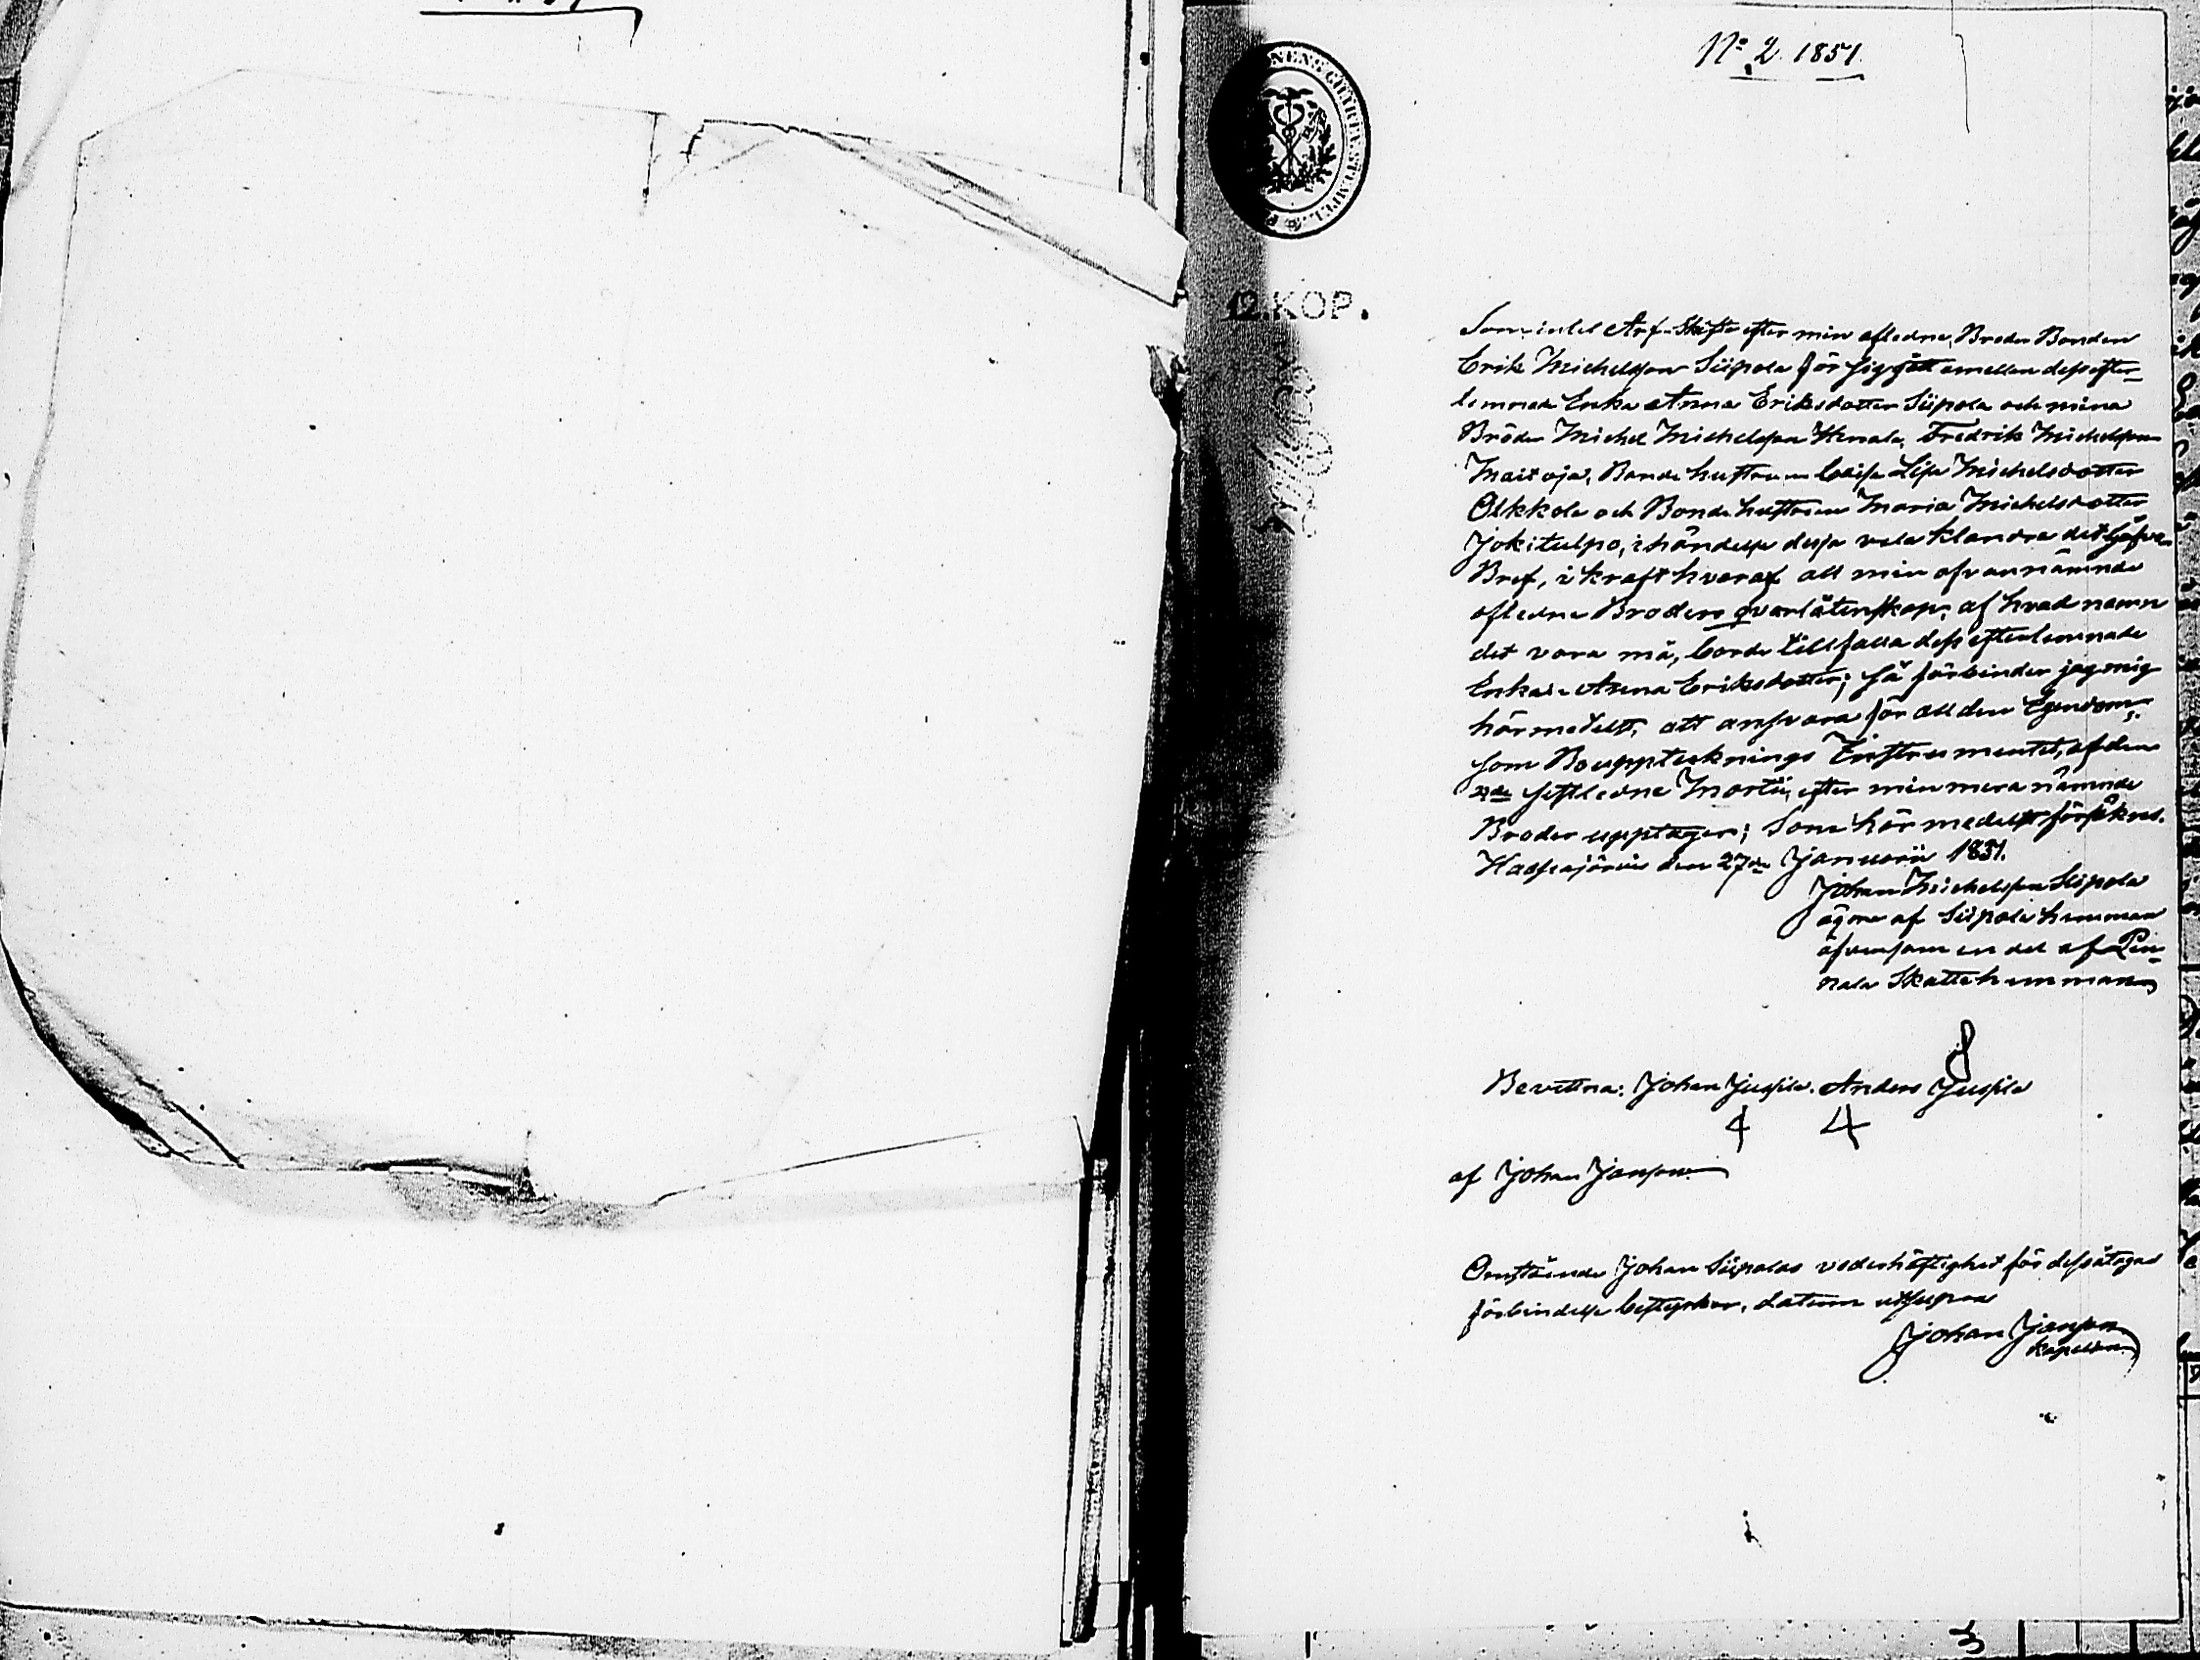 No 2. 1851.
12. KOP.
Som intet Arf-Skifte efter min aflidne, Broder Bonden
Erik Michelsson Siipola för siggått emellan dess efter-
lemnade Enka Anna Eriksdotter Siipola och mina
Bröder Michel Michelsson, Fredrik Michelsson
Maitoja, Bonde hustrun Caisa Lisa Michelsdotter
Olkkola och Bonde hustrun Maria Michelsdotter
Jokitulpo, i händelse dessa vela klandra det Gåfve-
Bref, i kraft hvaraf all min ofvannämnde
aflidne Broders qvarlåtenskap, af hvad namn
det vara må, borde tillfalla dess efterlemnade
Enka Anna Eriksdotter; så förbinder jag mig
härmedelst, att ansvara för all den Egendom,
som Bouppteknings Instrumentet, af den
sistledne Martii, efter min mera nämnde
Broder upptager; Som härmedelst försäkras.
den 27de Januarii 1851.
Johan Michelsson Siipola
ägare af Siipola hemman
äfvensom en del af Pii-
nala Skattehemman
Bevittna: Johan Jussila. Anders Jussila
af Johan Janson
Omstående Johan Siipolas vederhäftighet för dess åtagne
förbindelse bestyrker, datum utsupra
Johan Janson
Kapellan